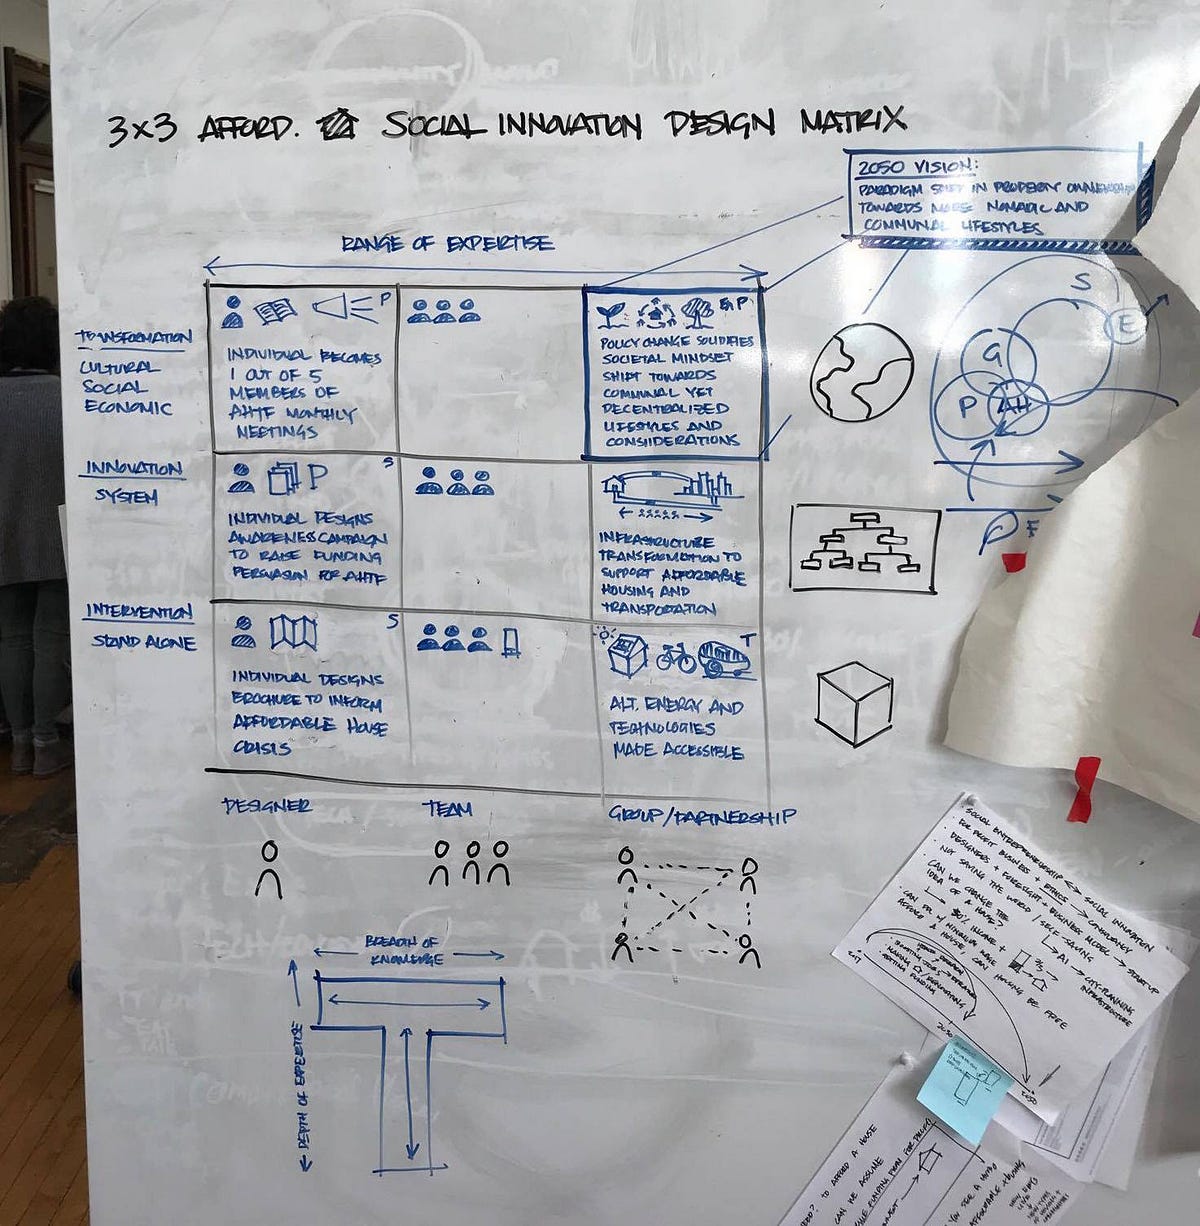 3x3 AFFORD. SOCIAL INNOVATION DESIGN MATRIX
2050 VISION:
PARADIGM SHIFT IN PROPERTY OWNERSHIP
TOWARDS MORE NOMADIC AND
COMMUNAL LIFESTYLES
RANGE OF EXPERTISE
TRANSFORMATION
CULTURAL
SOCIAL
ECONOMIC
P
INDIVIDUAL BECOMES
1 OUT OF 5
MEMBERS OF
AHTF MONTHLY
MEETINGS
E, P
POLICY CHANGE SOLIDIFIES
SOCIETAL MINDSET
SHIFT TOWARDS
COMMUNAL YET
DECENTRALIZED
LIFESTYLES AND
CONSIDERATIONS
S
E
G
P
AH
INNOVATION
SYSTEM
P
S
INDIVIDUAL DESIGNS
AWARENESS CAMPAIGN
TO RAISE FUNDING
PERSUASION FOR AHTF
INFRASTRUCTURE
TRANSFORMATION TO
SUPPORT AFFORDABLE
HOUSING AND
TRANSPORTATION
INTERVENTION
STAND ALONE
S
INDIVIDUAL DESIGNS
BROCHURE TO INFORM
AFFORDABLE HOUSE
CRISIS
T
ALT. ENERGY AND
TECHNOLOGIES
MADE ACCESSIBLE
DESIGNER
TEAM
GROUP/PARTNERSHIP
BREADTH OF
KNOWLEDGE
DEPTH OF EXPERTISE
• SOCIAL ENTREPRENEURSHIP <-> SOCIAL INNOVATION
• FOR PROFIT BUSINESS + ETHICS -> CONSULTANCY
• DESIGNERS + FORESIGHT + BUSINESS MODEL -> START UP
NOT SAVING THE WORLD / SELF SAVING
AI -> CITY-PLANNING
INFRASTRUCTURE
• CAN WE CHANGE THE
IDEA OF A HOUSE?
$0/ INCOME +
A HOUSE, CAN HOUSING BE FREE
2017
2030
2050
TO AFFORD A HOUSE
CAN WE ASSUME